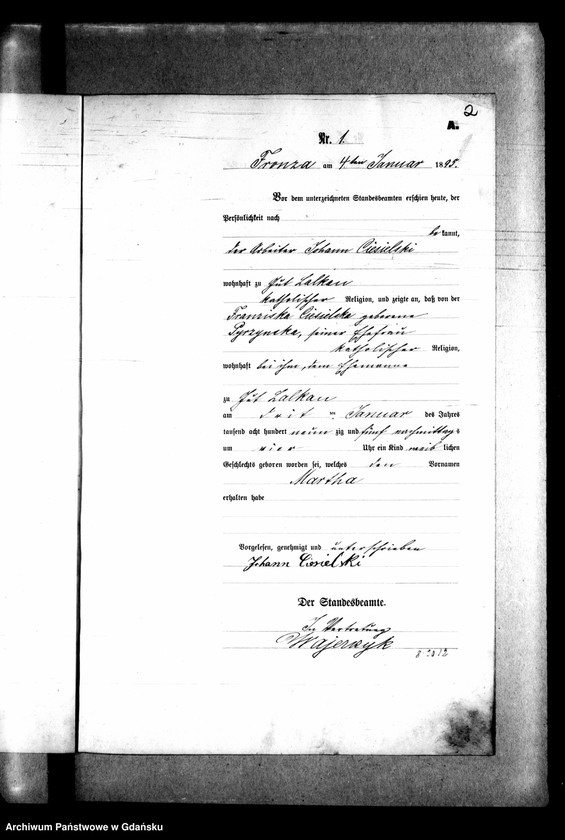 2
A.
Nr. 1.
Fronza am 4ten Januar 1895.
Vor dem unterzeichneten Standesbeamten erschien heute, der
Persönlichkeit nach
be kannt,
der Arbeiter Johann Ciesielski
wohnhaft zu Gut Lalkau
katholischer Religion, und zeigte an, daß von der
Franziska Ciesielska geborene
Pyrzynska, seiner Ehefrau
katholischer Religion,
wohnhaft bei ihm, dem Ehemanne
zu Gut Lalkau
am drit ten Januar des Jahres
tausend acht hundert neun zig und fünf nachmittags
um vier Uhr ein Kind weib lichen
Geschlechts geboren worden sei, welches den Vornamen
Martha
erhalten habe
Vorgelesen, genehmigt und unterschrieben
Johann Ciesielski
Der Standesbeamte.
In Vertretung
Majerzyk
Archiwum Państwowe w Gdańsku